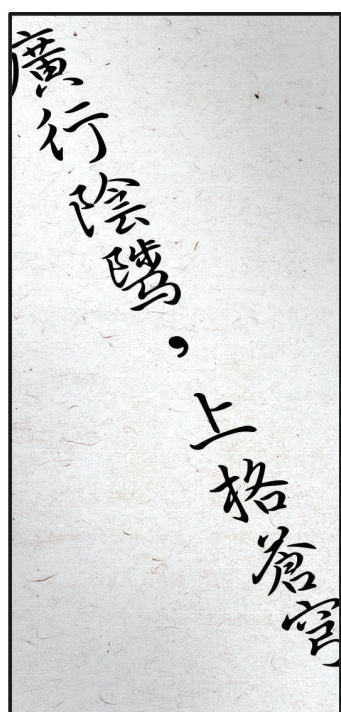 廣行陰騭，上格蒼穹